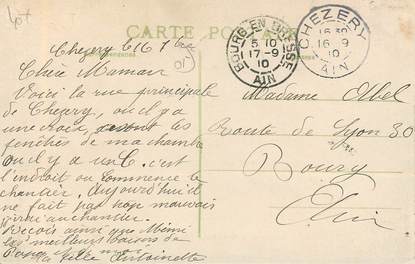 lot
CARTE POSTALE
BOURG-EN-BRESSE
5 10
17-9
10
AIN
CHEZERY
16 30
16-9
10
AIN
Chezery le 16 7bre
Chère Maman
Voici la rue principale
de Chezery, ou il y a
une croix, avant les
fenêtres de ma chambre
ou il y a un C. c'est
l'indroit ou commence le
chantier. Aujourd'hui il
ne fait pas trop mauvais
au chantier.
Recois ainsi que Mémé
les meilleurs baisers de
ta fille Antoinette
Madame Abel
Route de Lyon 30
Bourg
Ain